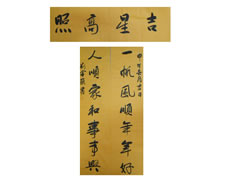 吉星高照
一帆風順年年好
人順家和事事興